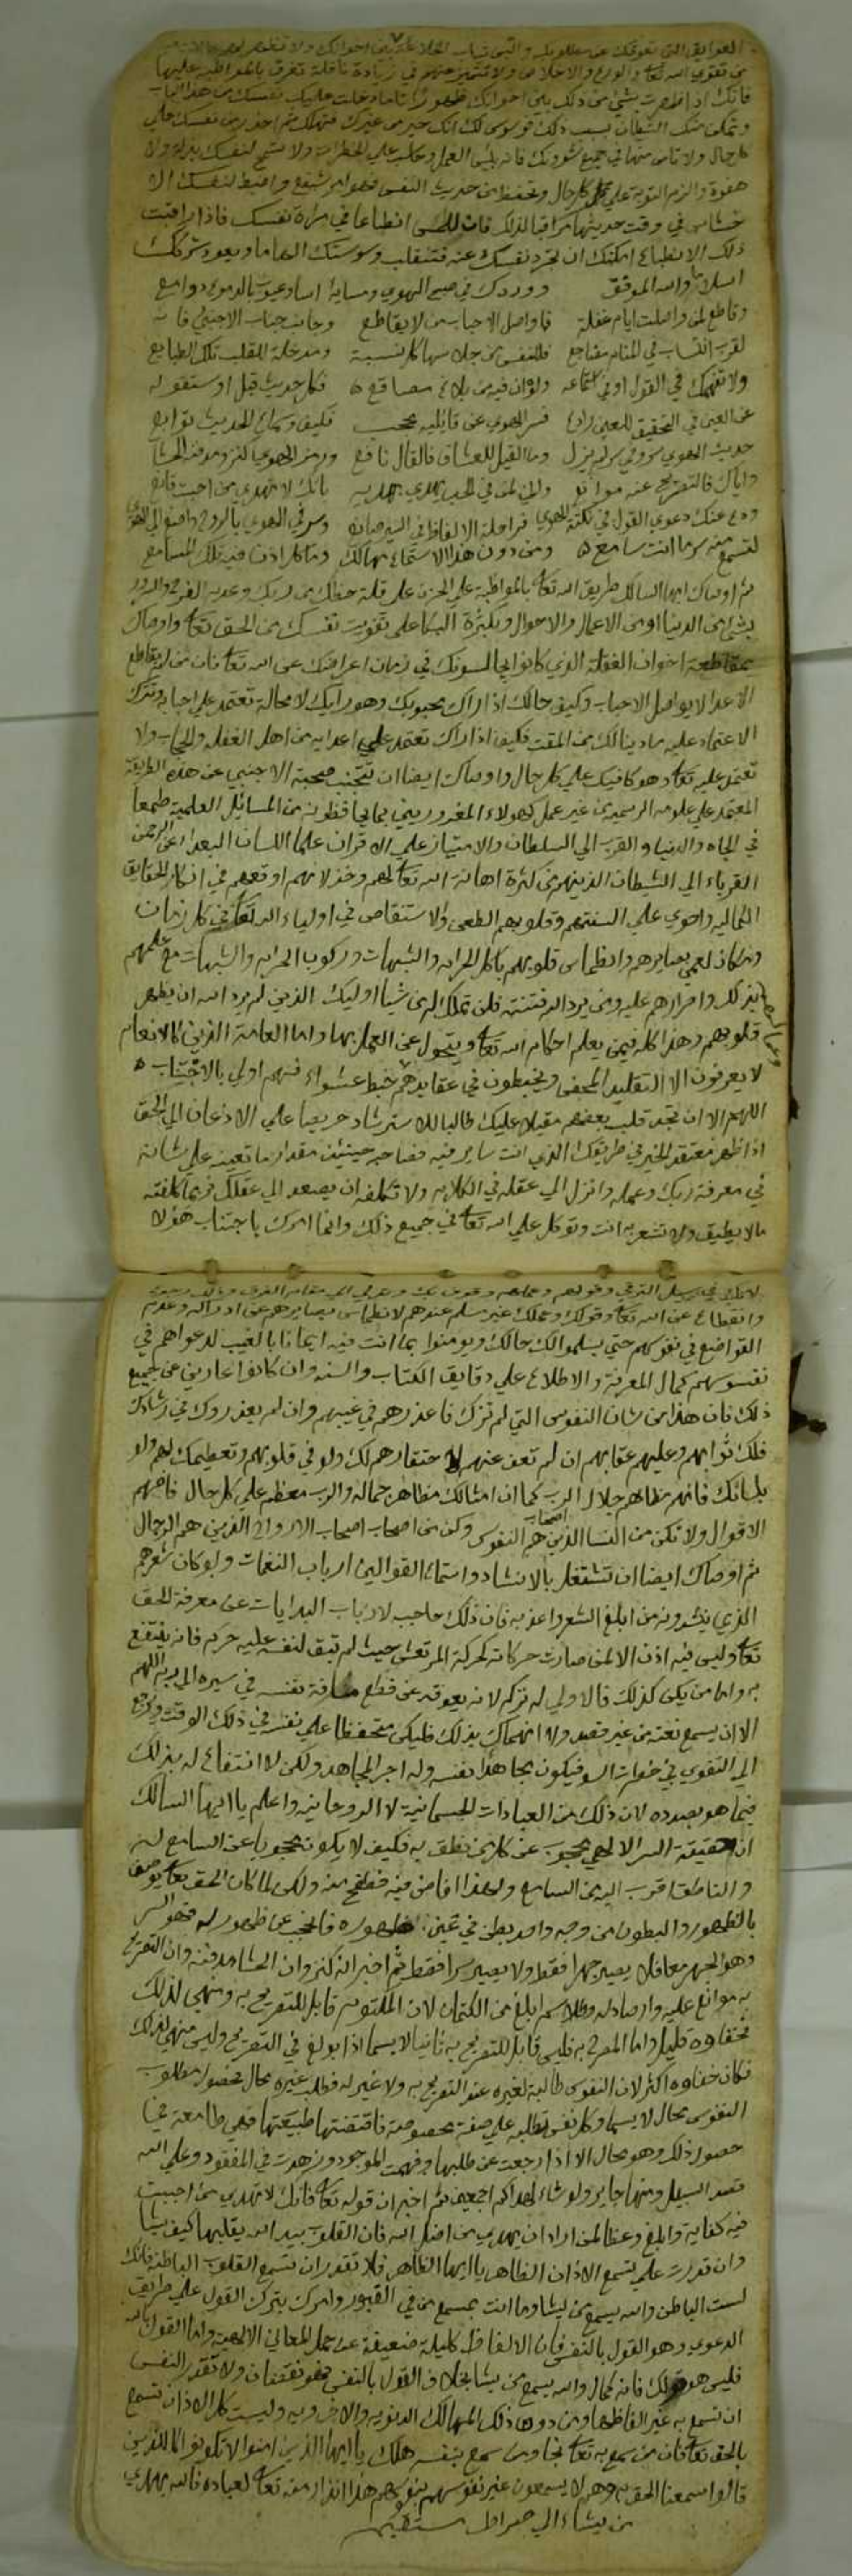 العوايق التي تعوقك عن مطلوبك والبس ثياب الخلاعة بين اخوانك ولا
من تقوي الله تعا والورع والاخلاص ولا تتميز عنهم في زيادة نافلة تعرف بالمواظبة عليها
فانك اذا اظهرت شئ من ذلك بين اخوانك ظهورا تاما دخلت عليك نفسك من هذا الباب
وتمكن منك الشيطان بسبب ذلك فوسوس لك انك خير من غيرك فتهلك ثم احذر من نفسك علي
كل حال ولا تامن منها في جميع شؤونك فانه بئس العمل وحاسب علي الخطرات ولا تسمح لنفسك بذلة ولا
هفوة والزم التوبة علي كل حال وتحفظ من حديث النفس فهو امر شنيع واضبط لنفسك الا
في وقت حديثها مراقبا لذلك فان للحس انطباعا في مراة نفسك فاذا راقبت
ذلك الانطباع امكنك ان تجرد نفسك عنه فتنقلب وسوستك الهاما ويعود شركك
اسلاما والله الموفق وورد في صبح الهوي ومسايه
وقاطع لمن واصلت ايام غفلة فما واصل الاحباب من لا يقاطع وجانب جناب الاجنبي فانه
لقرب انتساب في المنام مضاجع فللنفس من جلاسها كل نسبة ومن خلة للقلب تلك الطبايع
ولا تنهمك في القول او في استماعه ولو ان فيه من بلاغ مصاقع فكل حديث قيل او ستقوله
عن العين في التحقيق للعين رادع فسر الهوي عن قايليه محجب فكيف وسماع الحديث توابع
حديث الهوي سر وفي سر لم يزل وما القيل للعشاق فالقال نافع ورمز الهوي لغز ومدفنه الحشا
واياك فالتصريح عنه موانع ولي من في الحب يهدي بهديه بانك لا تهدي من احببت قانع
ودع عنك دعوي القول في نكتة الهوي فراحلة الالفاظ في السير ضالع وسر في الهوي بالروح واصغ الي الهوي
لتسمع منه سر ما انت سامع ومن دون هذا الاستماع مهالك وما كل اذن فيه تلك المسامع
ثم اوصاك ايها السالك طريق الله تعا بالمواظبة علي الحزن علي قلة حظك من ربك وعدم الفرح والسرور
بشئ من الدنيا او من الاعمال والاحوال وبكثرة البكا علي تفويت نفسك من الحق تعا واوصاك
بمقاطعة اخوان الغفلة الذي كانوا يالسونك في زمان اعراضك عن الله تعا فان من لم يقاطع
الاعدا لا يواصل الاحباب وكيف حالك اذا راك محبوبك وهو رايك لا محالة تعتمد علي احبابه وتترك
الاعتماد عليه ماذا ينالك من المقت فكيف اذا راك تعتمد علي اعدايه من اهل الغفلة والحجاب ولا
تعتمد عليه تعا وهو كافيك علي كل حال واوصاك ايضا ان تتجنب صحبة الاجنبي عن هذه الطريقة
المعتمد علي علومه الرسمية من غير عمل كهولاء المغرورين بما يحافظون من المسايل العلمية طمعا
في الجاه والدنيا والقرب الي السلطان والامتياز علي الاقران علما اللسان البعدا عن الرحمن
القرباء الي الشيطان الذين من كثرة اهانة الله تعا لهم وخذلانهم اوقعهم في انكار الحقايق
الكمالية واجري علي السنتهم وقلوبهم الطعن والاستنقاص في اولياء الله تعا في كل زمان
ومكان لعمي بصايرهم وانطماس قلوبهم باكل الحرام والشبهات وركوب الحرام والشبهات مع علمهم
بذلك واصرارهم عليه ومن يرد الله فتنته فلن تملك له من الله شيا اوليك الذين لم يرد الله ان يطهر
قلوبهم وهذا كله فيمن يعلم احكام الله تعا ويتحول عن العمل بها واما العامة الذين كالانعام
لا يعرفون الا التقليد المحض ويخبطون في عقايدهم خبط عشواء فهم اولي بالاجتناب
اللهم الا ان تجد قلب بعضهم مقبلا عليك طالبا للاسترشاد حريصا علي الاذعان الي الحق
اذا ظهر معتقد الخير في طريقك الذي انت ساير فيه فصاحبه حينيذ مقدار ما تعينه علي شانه
في معرفة ربك وعمله وانزل الي عقله في الكلام ولا تكلفه ان يصعد الي عقلك فربما كلفته
ما لا يطيق ولا تشعر به انت وتوكل علي الله تعا في جميع ذلك وانما امرك باجتناب هولا
وانقطاع عن الله تعا وقولك وعملك غير مسلم عندهم لانطماس بصايرهم عن ادراكه وعدم
التواضع في نفوسهم حتي يسلموا لك حالك ويومنوا بما انت فيه ايمانا بالغيب لدعواهم في
نفوسهم كمال المعرفة والاطلاع علي دقايق الكتاب والسنه وان كانوا عارين عن جميع
ذلك فان هذا من شان النفوس التي لم تزك فاعذرهم في غيبهم وان لم يعذروك في رشادك
فلك ثوابهم وعليهم عقابهم ان لم تعف عنهم لاحتقارهم لك ولو في قلوبهم وتعظيمك لهم ولو
بلسانك فانهم مظاهر جلال الرب كما ان امثالك مظاهر جماله والرب معظم علي كل حال فافهم
الاقوال ولا تكن من النسا الذين هم اصحاب النفوس وكن من اصحاب الارواح الذين هم الرجال
ثم اوصاك ايضا ان تشتغل بالانشاد واستماع القوالين ارباب النغمات ولو كان شعرهم
الذي ينشدونه من ابلغ الشعر واعذبه فان ذلك حاجب لارباب البدايات عن معرفة الحق
تعا وليس فيه اذن الا لمن صارت حركاته كحركة المرتعش حيث لم تبق لنفسه عليه حركة فانه ينتفع
به واما من يكن كذلك فالاولي له تركه لانه يعوقه عن قطع مسافة نفسه في سيره الي ربه اللهم
الا ان يسمع نغمة من غير قصد ولا انهماك بذلك فليكن متحفظا علي نفسه في ذلك الوقت ويرجع
الي التقوي في خطرات السو فيكون مجاهدا نفسه وله اجر المجاهد ولكن لا انتفاع له بذلك
فيما هو بصدده لان ذلك من العبادات الجسمانية لا الروحانيه واعلم يا ايها السالك
ان حقيقة السر الالهي محجوب عن كل من نطق به فكيف لا يكون محجوبا عن السامع له
والناطق اقرب اليه من السامع ولهذا افاض فيه فنطق منه ولكن لما كان الحق تعا يوصف
بالظهور والبطون من وجه واحد بطن في عين ظهوره فاحجب عن ظهوره فهو السر
وهو الجهر معا فلا يصير جهرا فقط ولا يصير سرا فقط ثم اخبر انه كنز وان الحشا مدفنه وان التصريح
به موانع عليه وارصاد له وطلاسم ابلغ من الكتمان لان المكتوم قابل للتصريح به ومنهي لذلك
فخفاوه قليل واما المصرح به فليس قابل للتصريح به ثانيا لا سيما اذا بولغ في التصريح وليس منهي لذلك
فكان خفاوه اكثر لان النفوس طالبة لغيره عند التصريح به ولا غير له فطلب غيره محال فحصول مطلوب
النفوس محال لا سيما وكل نفس تطلبه علي صفة مخصوصة فاقتضتها طبيعتها فهي طامعة في
حصول ذلك وهو محال الا اذا رجعت عن طلبها وفهمت الموجود وزهدت في المفقود وعلي الله
قصد السبيل ومنها جاير ولو شاء لهداكم اجمعين ثم اخبر ان قوله تعا فانك لا تهدي من احببت
فيه كفاية وابلغ وعظا لمن اراد ان يهدي من اضل الله فان القلوب بيد الله يقلبها كيف يشا
وان قدرت علي تسمع الاذان الظاهر يا ايها الظاهر فلا تقدر ان تسمع القلوب الباطنة فانك
لست الباطن والله يسمع من يشا وما انت بمسمع من في القبور وامرك بترك القول علي طريق
الدعوي وهو القول بالنفس فان الالفاظ كليلة ضعيفة عن حمل المعاني الالهية واما القول بالله
فليس هو قولك فانه كمال والله يسمع من يشا بخلاف القول بالنفس فهو نقصان ولا تقدر النفس
ان تسمع به غير الفاظها ومن دون ذلك المهالك الدنيويه والاخرويه وليست كل الاذان تسمع
بالحق تعا فان من سمع به تعا نجا ومن سمع بنفسه هلك يا ايها الذين امنوا لا تكونوا كالذين
قالوا سمعنا الحق وهم لا يسمعون غير نفوسهم بنفوسهم هذا انذار منه تعا لعباده فالله يهدي
من يشاء الي صراط مستقيم